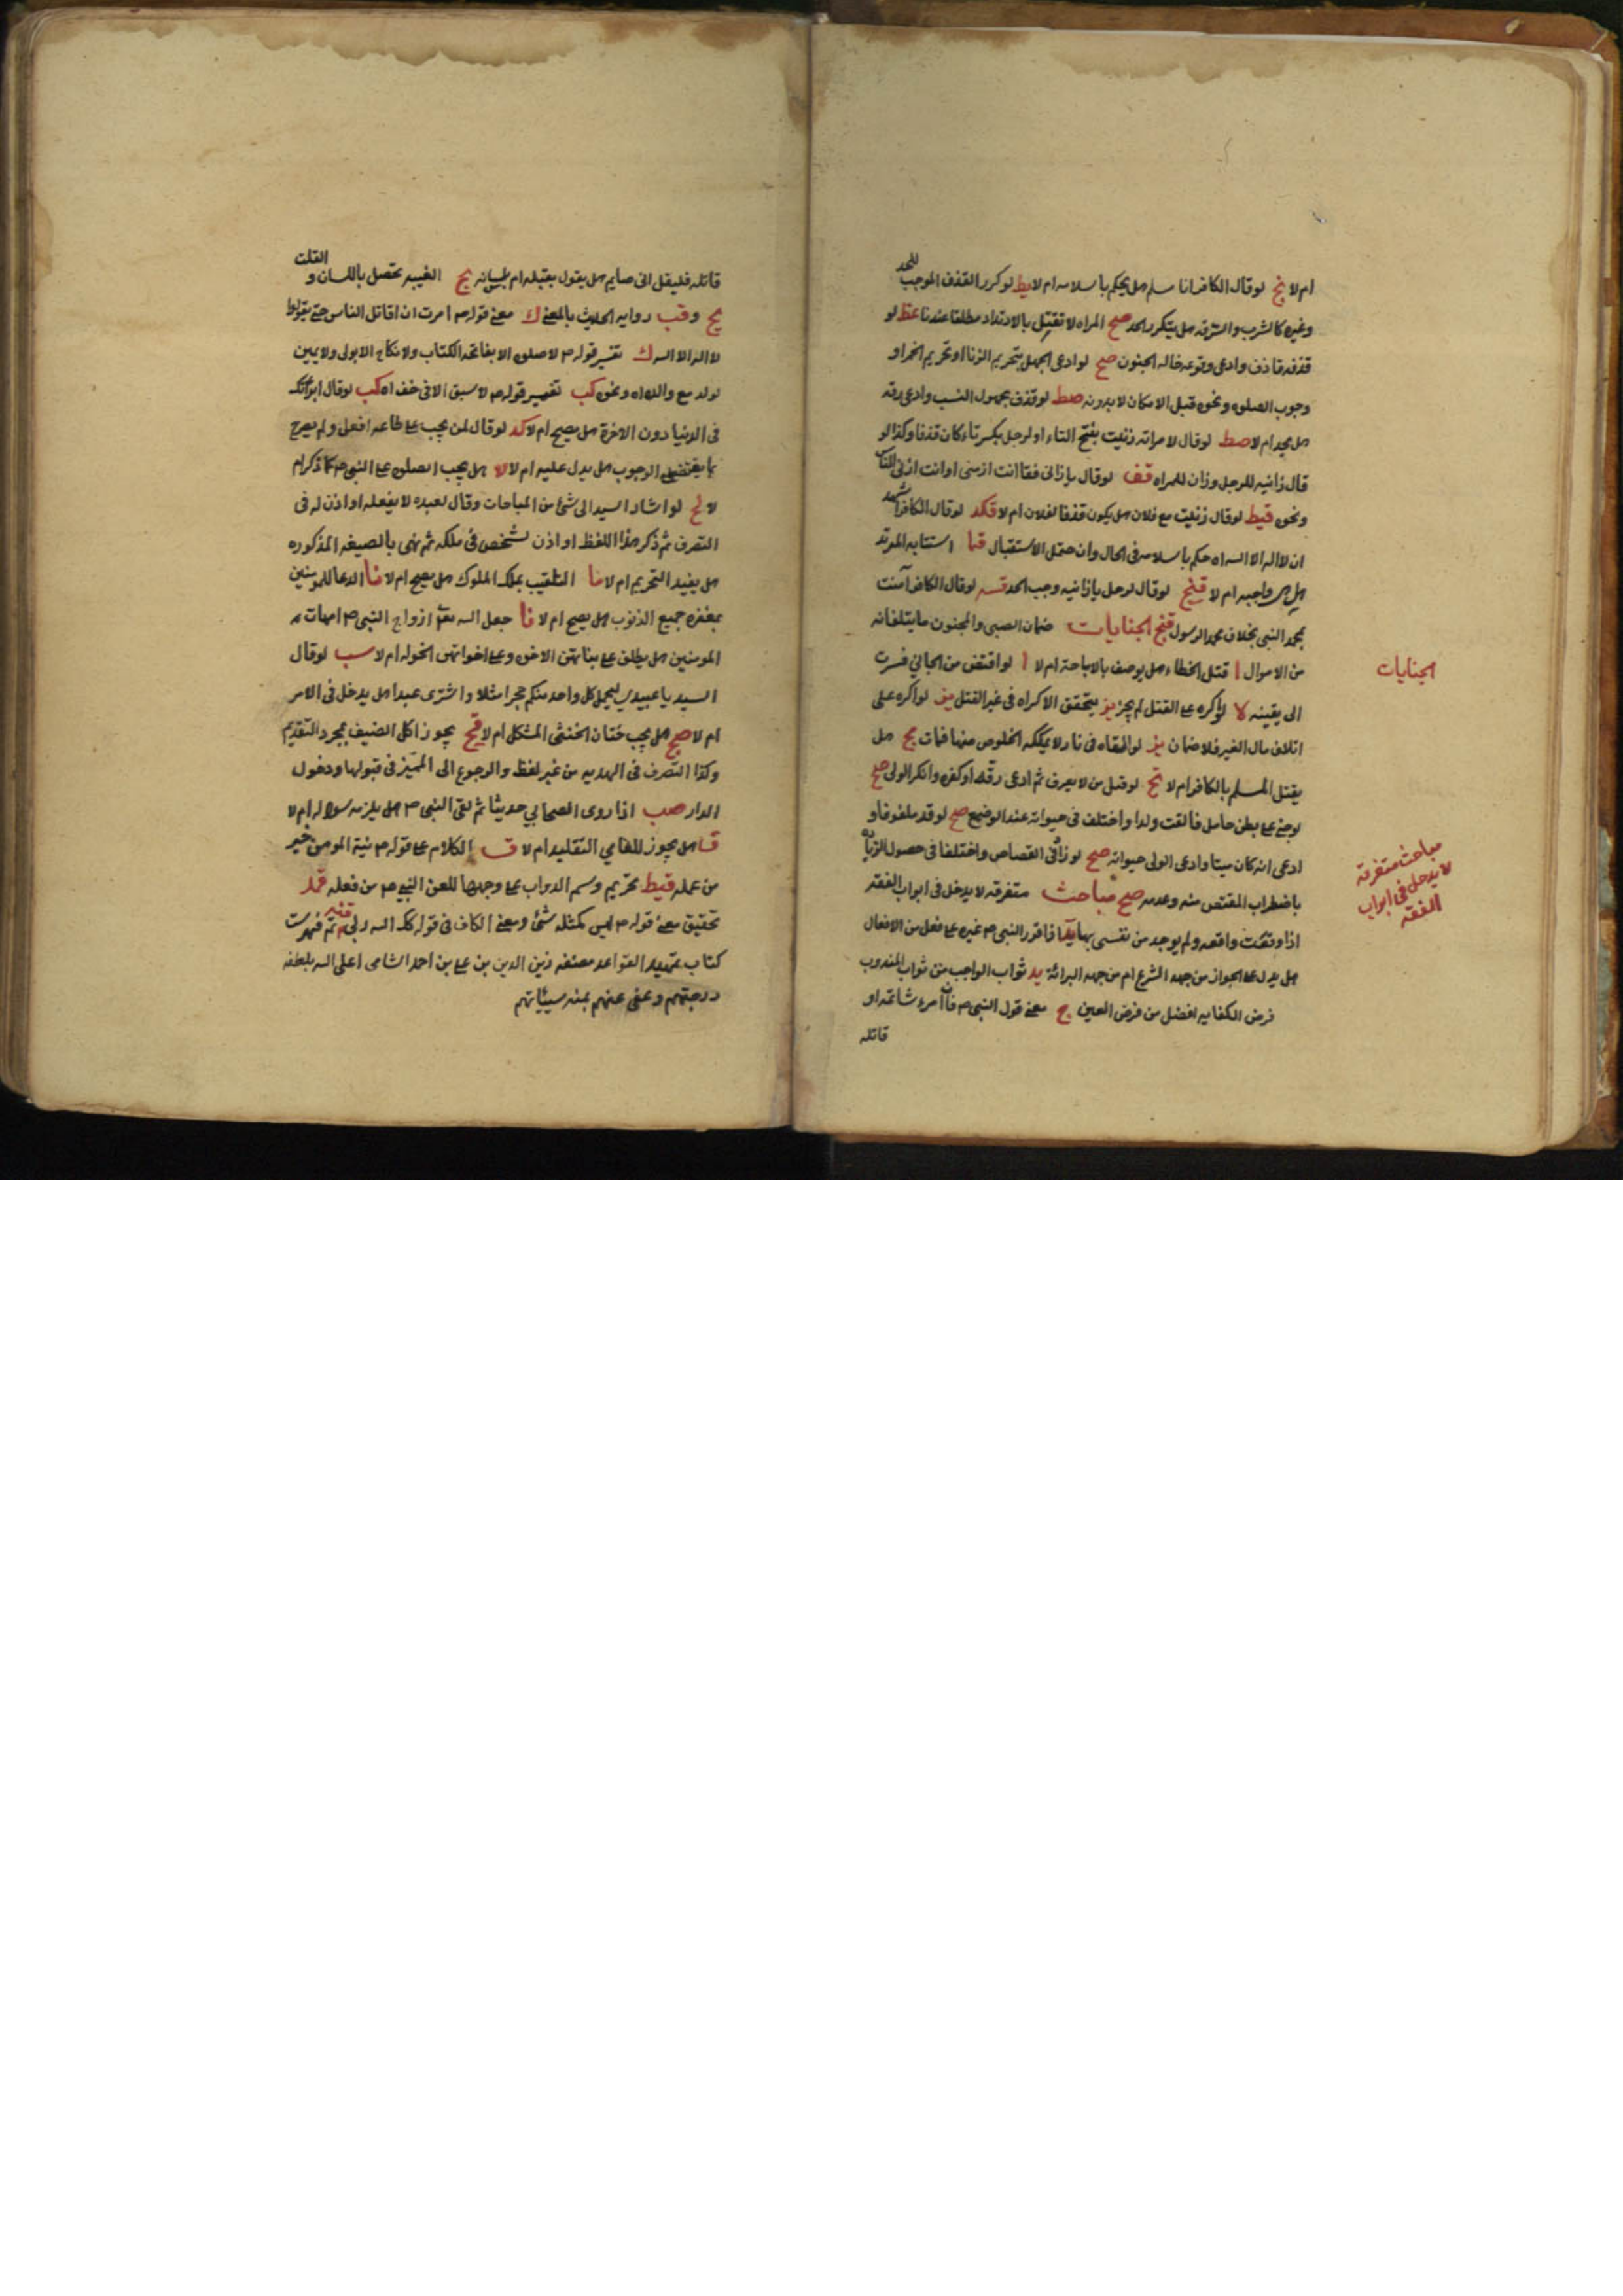 ام لا نخ لو قال الكافر انا مسلم هل يحكم باسلامه ام لا يط لو كرر القذف الموجب للحد
وغيره كالشرب والسرقه هل يتكرر الحد صح المراه لا تقتل بالارتداد مطلقا عندنا عط لو
قذفه قاذف وادعى وقوعه حاله الجنون صح لو ادعى الجهل بتحريم الزنا او تحريم الخمر او
وجوب الصلوه ونحوه قبل الامكان لا بدونه صط لو قذف مجهول النسب وادعى رقه
هل يحد ام لا صط لو قال لامراته زنيت بفتح التاء او لرجل بكسر تاء كان قذفا وكذا لو
قال زانيه للرجل وزان للمراه قف لو قال يا زانى فقا انت ازمنى او انت ازنى الناس
ونحوه قيط لو قال زنيت مع فلان هل يكون قذفا لفلان ام لا قكد لو قال الكافر اشهد
ان لا اله الا الله اه حكم باسلامه فى الحال وان حتمل الاستقبال قما استتابه المرتد
هل هى واجبه ام لا قنح لو قال لرجل يا زانيه وجب الحد قسه لو قال الكافر آمنت
بمحمد النبى بخلاف محمد الرسول قنح الجنايات ضمان الصبى والمجنون ما يتلفانه
الجنايات
من الاموال ا قتل الخطاء هل يوصف بالاباحة ام لا ا لو اقتض من الجاني فسرت
الى يقينه لا لو اكره على القتل لم يجز يز يتحقق الاكراه فى غير القتل يز لو اكره على
اتلاف مال الغير فلا ضمان يز لو القاه فى نار لا يمكنه الخلوص منها فمات يح هل
يقتل المسلم بالكافر ام لا نح لو قتل من لا يعرف ثم ادعى رقه او كفره وانكر الولى صح
لو جنى على بطن حامل فالقت ولدا واختلف فى حيواته عند الوضع صح لو قد ملفوفا و
ادعى انه كان ميتا وادعى الولى حيواته صح لو زاد فى القصاص واختلفا فى حصول الزياده
مباحث متفرقه
لا يدخل فى ابواب
الفقه
باضطراب المقتص منه وعدمه صح مباحث متفرقه لا يدخل فى ابواب الفقه
اذا وقعت واقعه ولم يوجد من نفسى بها يد اذا قرر النبى ص غيره على فعل من الافعال
هل يدل على الجواز من جهه الشرع ام من جهه البرائة يد ثواب الواجب من ثواب المندوب
فرض الكفايه افضل من فرض العين ج معنى قول النبى ص فان امرء شاتمه او
قاتله
قاتله فليقل انى صايم هل يقول بقلبه ام بلسانه يح الغيبه تحصل باللسان و القلب
يح وقب روايه الحديث بالمعنى ك معنى قوله ص امرت ان اقاتل الناس حتى يقولوا
لا اله الا الله ك تفسير قوله ص لا صلوه الا بفاتحه الكتاب ولا نكاح الا بولى ولا يمين
لولد مع والده اه ونحوه كب تفسير قوله ص لا سبق الا فى خف اه كب لو قال ابراتك
فى الدنيا دون الاخرة هل يصح ام لا كد لو قال لمن يجب على طاعه افعل ولم يصرح
بما يقتضى الوجوب هل يدل عليه ام لا لا هل يجب الصلوه على النبى ص كلما ذكر ام
لا لح لو اشار السيد الى شئ من المباحات وقال لعبده لا يفعله او اذن له فى
التصرف ثم ذكر هذا اللفظ او اذن لشخص فى ملكه ثم نهى بالصيغه المذكوره
هل يفيد التحريم ام لا نا التلقيب بملك الملوك هل يصح ام لا نا الدعا للمومنين
بمغفره جميع الذنوب هل يصح ام لا نا جعل الله تعالى ازواج النبى ص امهات
المومنين هل يطلق على بناتهن الاخوه وعلى اخواتهن الخوله ام لا سب لو قال
السيد يا عبيدى ليحمل كل واحد منكم حجرا مثلا واشترى عبدا هل يدخل فى الامر
ام لا صح هل يجب ختان الخنثى المشكل ام لا قيح يجوز اكل الضيف بمجرد التقديم
وكذا التصرف فى الهديه من غير لفظ والرجوع الى المميز فى قبولها ودخول
الدار صب اذا روى الصحابي حديثا ثم لقى النبى ص هل يلزمه سواله ام لا
قا هل يجوز للعامي التقليد ام لا قب الكلام على قوله ص نية المومن خير
من عمله قيط تحريم وسم الدواب على وجهها للعن النبى ص من فعله قمد
تحقيق معنى قوله ص ليس كمثله شئ ومعنى الكاف فى قوله كـ الله ربى قنه تم فهرست
كتاب تمهيد القواعد مصنفه زين الدين بن على بن احمد الشامى اعلى الله بلطفه
درجتهم وعفى عنهم بمنه سيئاتهم